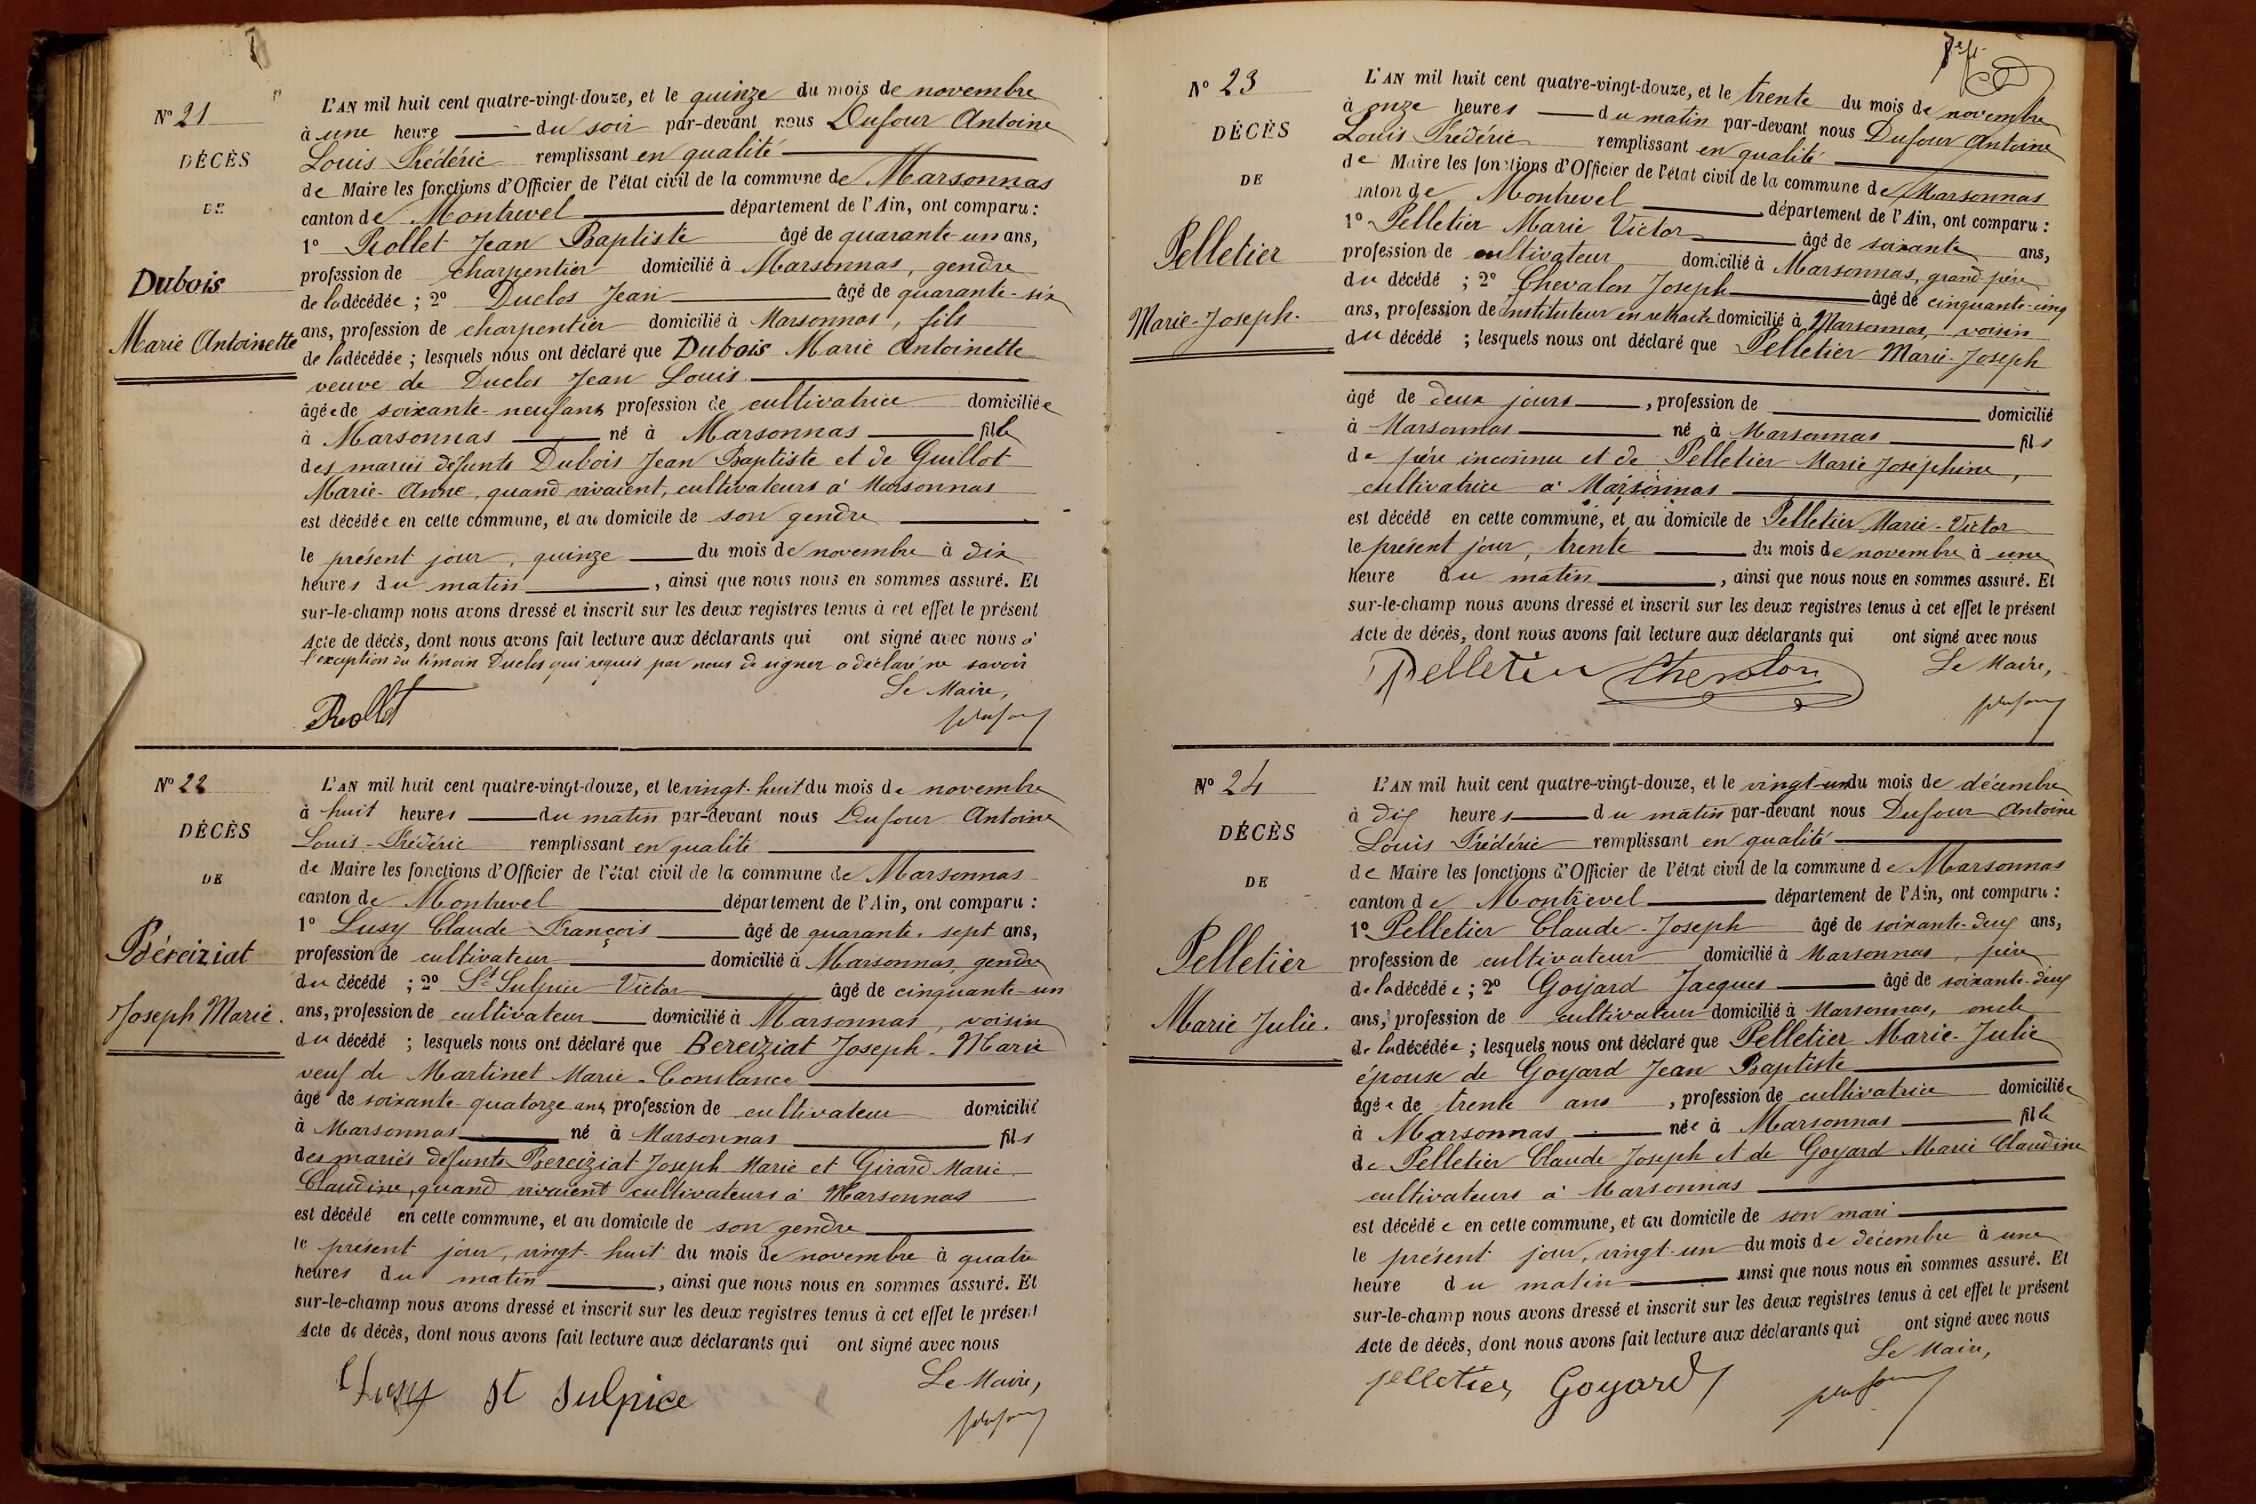 N° 21
DÉCÈS
DE
Dubois
Marie Antoinette
L'AN mil huit cent quatre-vingt-douze, et le quinze du mois de novembre
à une heure du soir par-devant nous Dufour Antoine
Louis Frédéric remplissant en qualité
de Maire les fonctions d'Officier de l'état civil de la commune de Marsonnas
canton de Montrevel département de l'Ain, ont comparu :
1° Rollet Jean Baptiste âgé de quarante-un ans,
profession de charpentier domicilié à Marsonnas, gendre
de la décédée ; 2° Duclos Jean âgé de quarante-six
ans, profession de charpentier domicilié à Marsonnas, fils
de la décédée ; lesquels nous ont déclaré que Dubois Marie Antoinette
veuve de Duclos Jean Louis
âgée de soixante-neuf ans profession de cultivatrice domiciliée
à Marsonnas né à Marsonnas fille
des mariés défunts Dubois Jean Baptiste et de Guillot
Marie-Anne, quand vivaient, cultivateurs à Marsonnas
est décédée en cette commune, et au domicile de son gendre
le présent jour, quinze du mois de novembre à dix
heures du matin, ainsi que nous nous en sommes assuré. Et
sur-le-champ nous avons dressé et inscrit sur les deux registres tenus à cet effet le présent
Acte de décès, dont nous avons fait lecture aux déclarants qui ont signé avec nous à
l'exception du témoin Duclos qui requis par nous de signer a déclaré ne savoir
Le Maire,
Rollet
N° 22
DÉCÈS
DE
Béréziat
Joseph Marie.
L'AN mil huit cent quatre-vingt-douze, et le vingt-huit du mois de novembre
à huit heures du matin par-devant nous Dufour Antoine
Louis-Frédéric remplissant en qualité
de Maire les fonctions d'Officier de l'état civil de la commune de Marsonnas
canton de Montrevel département de l'Ain, ont comparu :
1° Lusy Claude François âgé de quarante-sept ans,
profession de cultivateur domicilié à Marsonnas, gendre
du décédé ; 2° St Sulpice Victor âgé de cinquante-un
ans, profession de cultivateur domicilié à Marsonnas, voisin
du décédé ; lesquels nous ont déclaré que Bereiziat Joseph-Marie
veuf de Martinet Marie-Constance
âgé de soixante-quatorze ans, profession de cultivateur domicilié
à Marsonnas né à Marsonnas fils
des mariés défunts Bereiziat Joseph Marie et Girard Marie
Claudine, quand vivaient cultivateurs à Marsonnas
est décédé en cette commune, et au domicile de son gendre
le présent jour, vingt-huit du mois de novembre à quatre
heures du matin, ainsi que nous nous en sommes assuré. Et
sur-le-champ nous avons dressé et inscrit sur les deux registres tenus à cet effet le présent
Acte de décès, dont nous avons fait lecture aux déclarants qui ont signé avec nous
Le Maire,
Lusy St Sulpice
N° 23
DÉCÈS
DE
Pelletier
Marie-Joseph.
L'AN mil huit cent quatre-vingt-douze, et le trente du mois de novembre
à onze heures du matin par-devant nous Dufour Antoine
Louis Frédéric remplissant en qualité
de Maire les fonctions d'Officier de l'état civil de la commune de Marsonnas
canton de Montrevel département de l'Ain, ont comparu :
1° Pelletier Marie Victor âgé de soixante ans,
profession de cultivateur domicilié à Marsonnas, grand père
du décédé ; 2° Chevalon Joseph âgé de cinquante-cinq
ans, profession de Instituteur en retraite domicilié à Marsonnas, voisin
du décédé ; lesquels nous ont déclaré que Pelletier Marie-Joseph
âgé de deux jours, profession de domicilié
à Marsonnas né à Marsonnas fils
de père inconnu et de Pelletier Marie Joséphine,
cultivatrice à Marsonnas
est décédé en cette commune, et au domicile de Pelletier Marie-Victor
le présent jour, trente du mois de novembre à une
heure du matin, ainsi que nous nous en sommes assuré. Et
sur-le-champ nous avons dressé et inscrit sur les deux registres tenus à cet effet le présent
Acte de décès, dont nous avons fait lecture aux déclarants qui ont signé avec nous
Le Maire,
Pelletier Chevalon
N° 24
DÉCÈS
DE
Pelletier
Marie Julie.
L'AN mil huit cent quatre-vingt-douze, et le vingt-un du mois de décembre
à dix heures du matin par-devant nous Dufour Antoine
Louis Frédéric remplissant en qualité
de Maire les fonctions d'Officier de l'état civil de la commune de Marsonnas
canton de Montrevel département de l'Ain, ont comparu :
1° Pelletier Claude-Joseph âgé de soixante-deux ans,
profession de cultivateur domicilié à Marsonnas, père
de la décédée ; 2° Goyard Jacques âgé de soixante-deux
ans, profession de cultivateur domicilié à Marsonnas, oncle
de la décédée ; lesquels nous ont déclaré que Pelletier Marie-Julie
épouse de Goyard Jean Baptiste
âgée de trente ans, profession de cultivatrice domiciliée
à Marsonnas née à Marsonnas fille
de Pelletier Claude Joseph et de Goyard Marie Claudine
cultivateurs à Marsonnas
est décédée en cette commune, et au domicile de son mari
le présent jour, vingt-un du mois de décembre à une
heure du matin ainsi que nous nous en sommes assuré. Et
sur-le-champ nous avons dressé et inscrit sur les deux registres tenus à cet effet le présent
Acte de décès, dont nous avons fait lecture aux déclarants qui ont signé avec nous
Le Maire,
pelletier Goyard